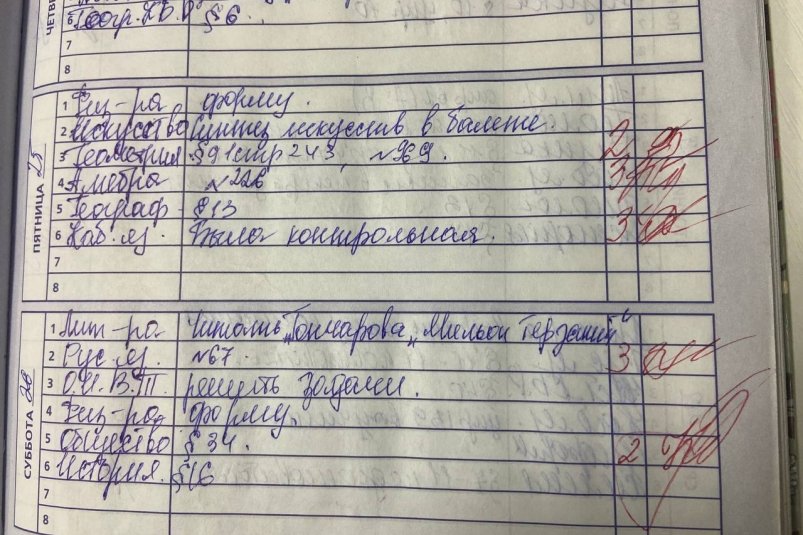 ЧЕТВЕ
6 Геогр. К.Б.Р §6.
7
8
ПЯТНИЦА 25
1 Физ-ра форму.
2 Искусство Синтез искусств в балете.
3 Геометрия §91 стр 243, №969. 2
4 Алгебра №226 3
5 Географ §13
6 Каб. яз. Была контрольная. 3
7
8
СУББОТА 26
1 Лит-ра Читать „Гончарова„ Мильон Терзаний“
2 Рус. яз. №67. 3
3 О.И.В.Т. решить задачи.
4 Физ-ра форму.
5 Общество §34. 2
6 История. §16
7
8